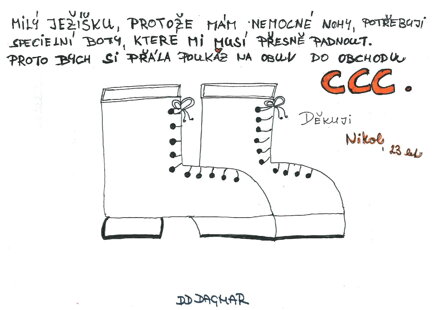 MILÝ JEŽÍŠKU, PROTOŽE MÁM NEMOCNÉ NOHY, POTŘEBUJI
SPECIELNÍ BOTY, KTERÉ MI MUSÍ PŘESNĚ PADNOUT.
PROTO BYCH SI PŘÁLA POUKAZ NA OBUV DO OBCHODU
CCC.
DĚKUJI
Nikol, 23 let
DD DAGMAR